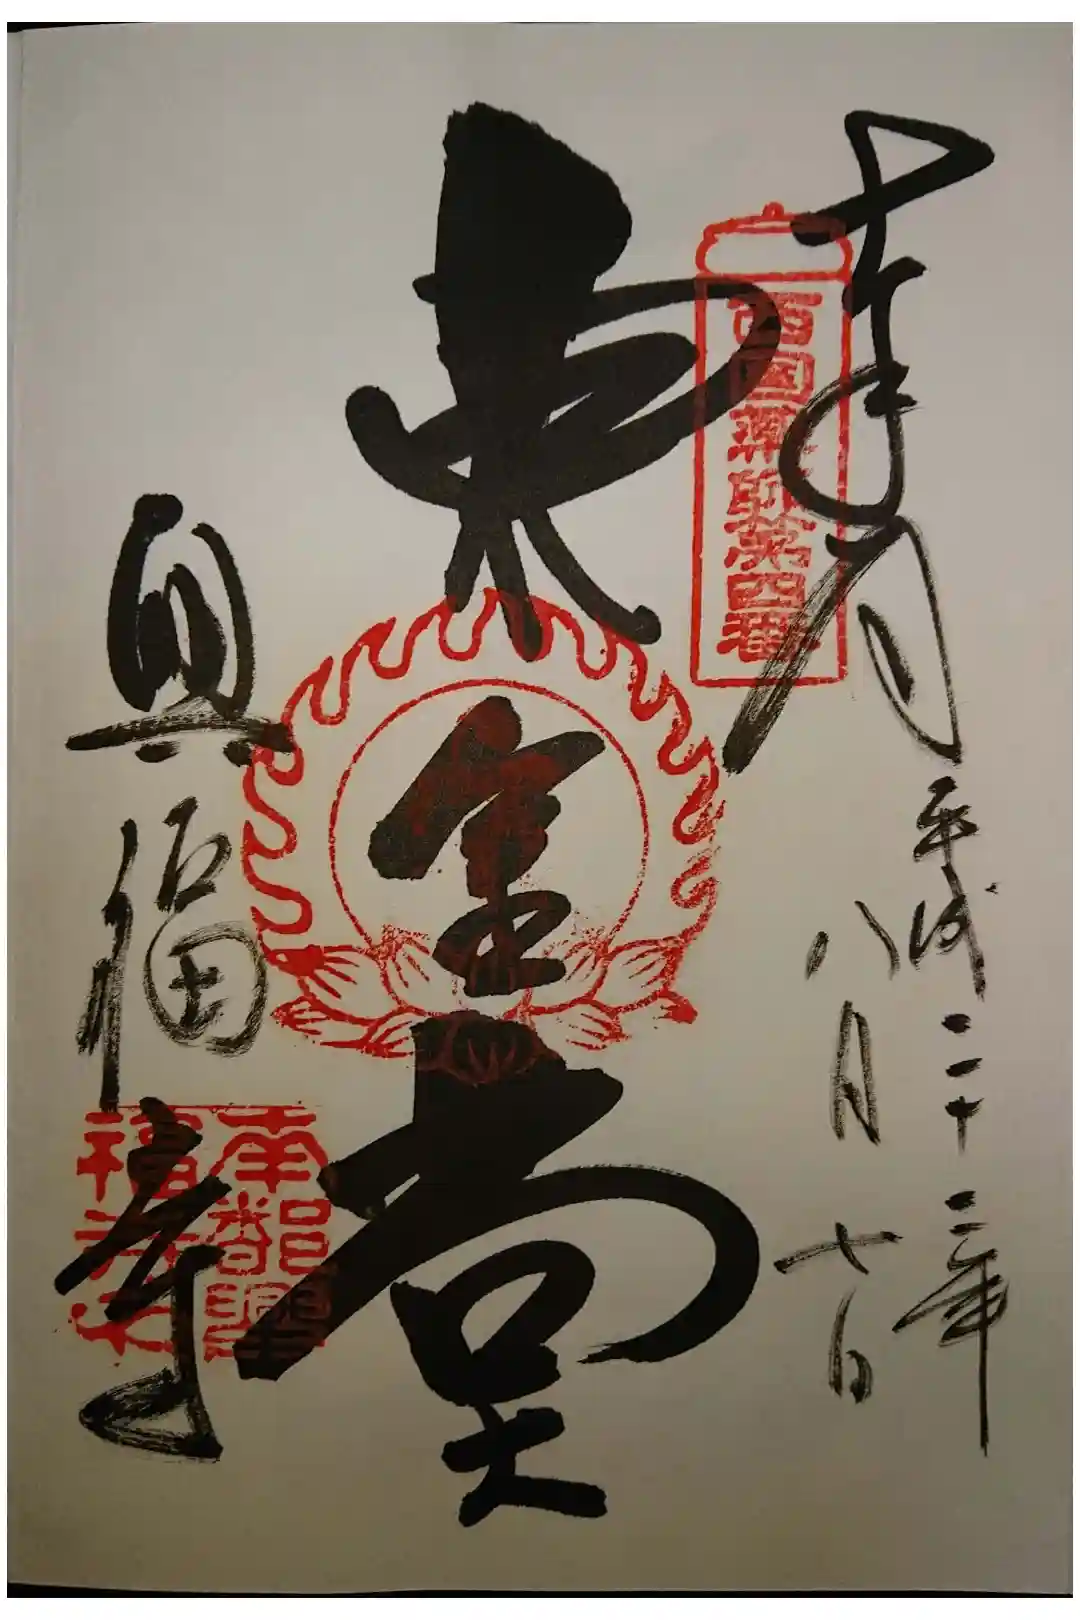 奉拝
平成二十三年
八月七日
西国薬師第四番
東金堂
興福寺
南都興
福寺印